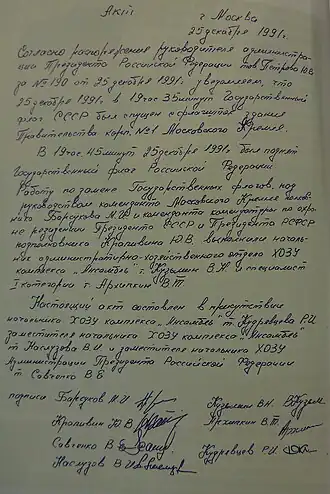 Акт
г Москва
25 декабря 1991 г.
Согласно распоряжения руководителя администра-
ции Президента Российской Федерации т Петрова Ю.В
за № 190 от 25 декабря 1991 г, уведомляем, что
25 декабря 1991 г. в 19 час 35 минут Государственный
флаг СССР был спущен с флагштока здания
Правительства корп. №1 Московского Кремля.
В 19 час. 45 минут 25 декабря 1991 г был поднят
Государственный флаг Российской Федерации
Работу по замене Государственных флагов, под
руководством коменданта Московского Кремля полков-
ника Барсукова М.И и коменданта комендатуры по охра-
не резиденции Президента СССР и Президента РСФСР
подполковника Крапивина Ю.В. выполняли началь-
ник административно-хозяйственного отдела ХОЗУ
комплекса "Ансамбль" т. Кузьмин В.Н и специалист
I категории т. Архипкин В.Т
Настоящий акт составлен в присутствие
начальника ХОЗУ комплекса "Ансамбль" т. Кудрявцева Р.И
заместителя начальника ХОЗУ комплекса "Ансамбль"
т Наслузова В.И и заместителя начальника ХОЗУ
Администрации Президента Российской Федерации
т Савченко В Б
подписи Барсуков М.И Кузьмин В.Н. В Кузьм
Крапивин Ю В Архипкин В.Т. Архип
Савченко В Б Кудрявцев Р.И
Наслузов В И